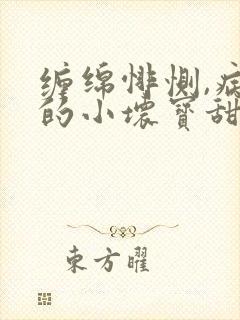 缠绵悱恻,病
的小坏宝甜
东方曜